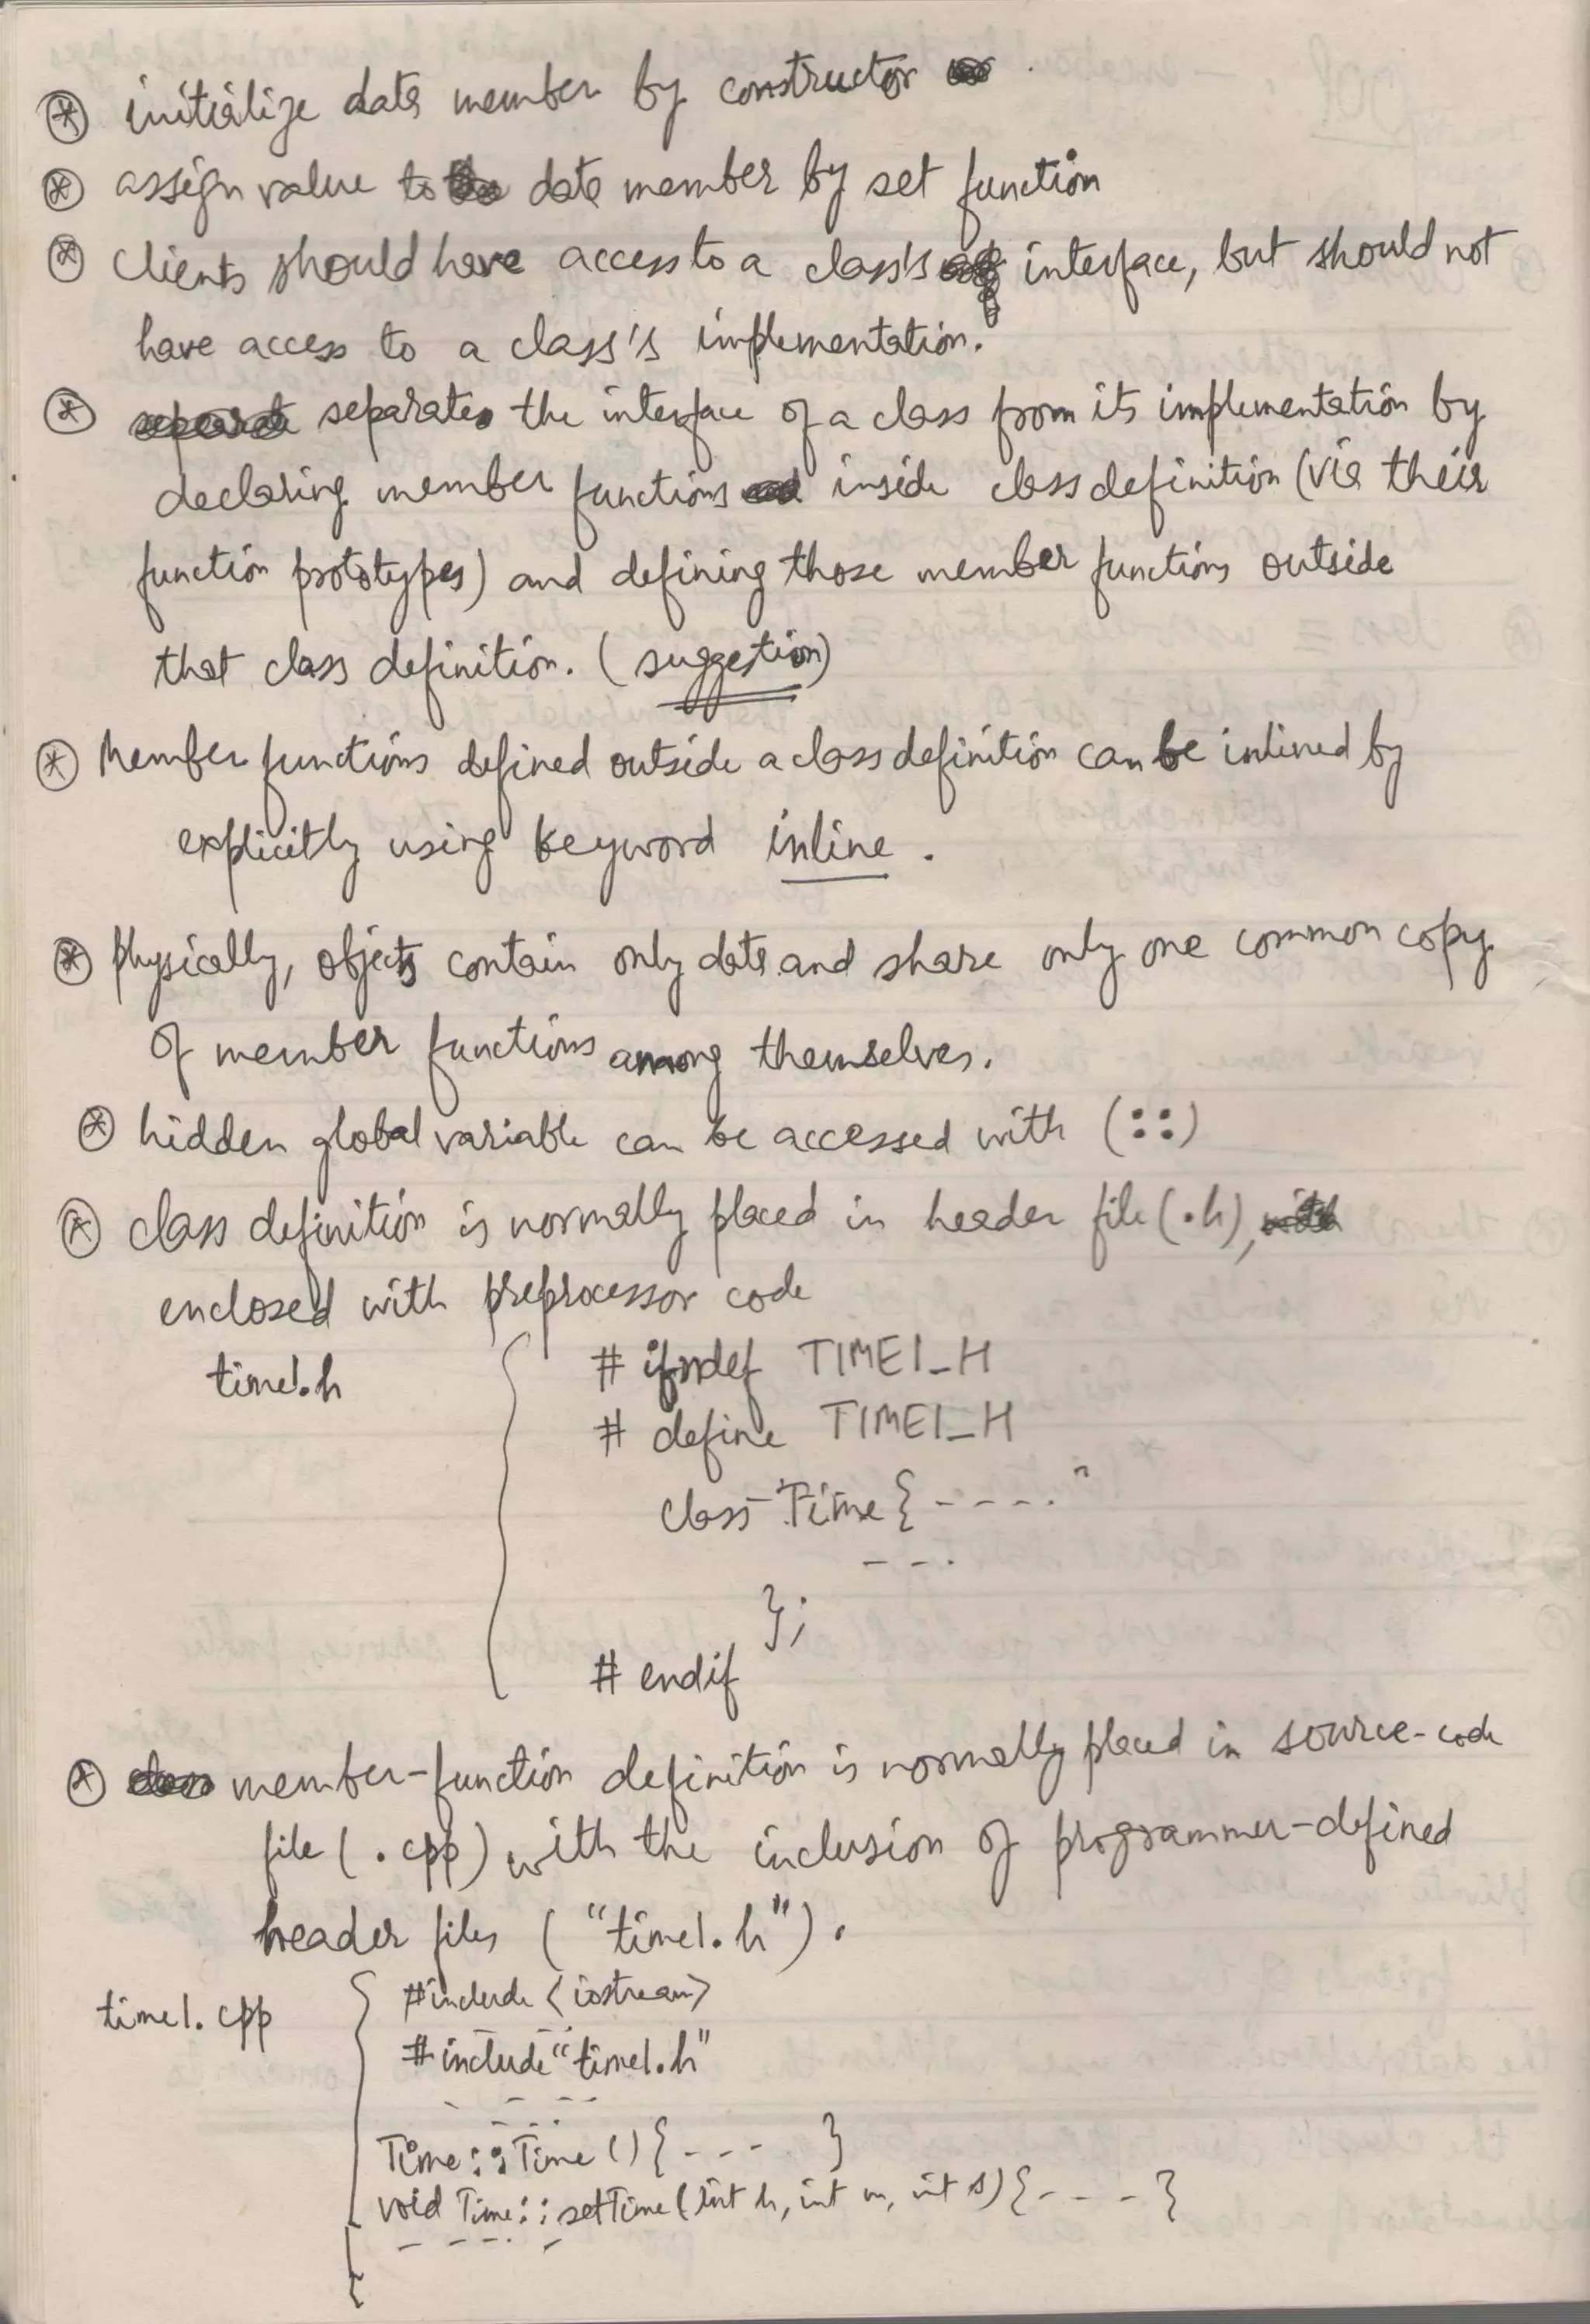 ⊛ initialize data member by constructor
⊛ assign value to data member by set function
⊛ clients should have access to a class's interface, but should not
have access to a class's implementation.
⊛ separates the interface of a class from its implementation by
declaring member functions inside class definition (via their
function prototypes) and defining those member functions outside
that class definition. (suggestion)
⊛ Member functions defined outside a class definition can be inlined by
explicitly using keyword inline.
⊛ Physically, objects contain only data and share only one common copy
of member functions among themselves.
⊛ hidden global variable can be accessed with (::)
⊛ class definition is normally placed in header file (.h),
enclosed with preprocessor code
time1.h { # ifndef TIME1_H
# define TIME1_H
class Time { - - - - .
- - .
};
# endif
⊛ member-function definition is normally placed in source-code
file (.cpp) with the inclusion of programmer-defined
header files ("time1.h").
time1.cpp { #include <iostream>
#include "time1.h"
- - - -
- - - .
Time::Time () { - - - }
void Time::setTime (int h, int m, int s) { - - - }
- - - - . -